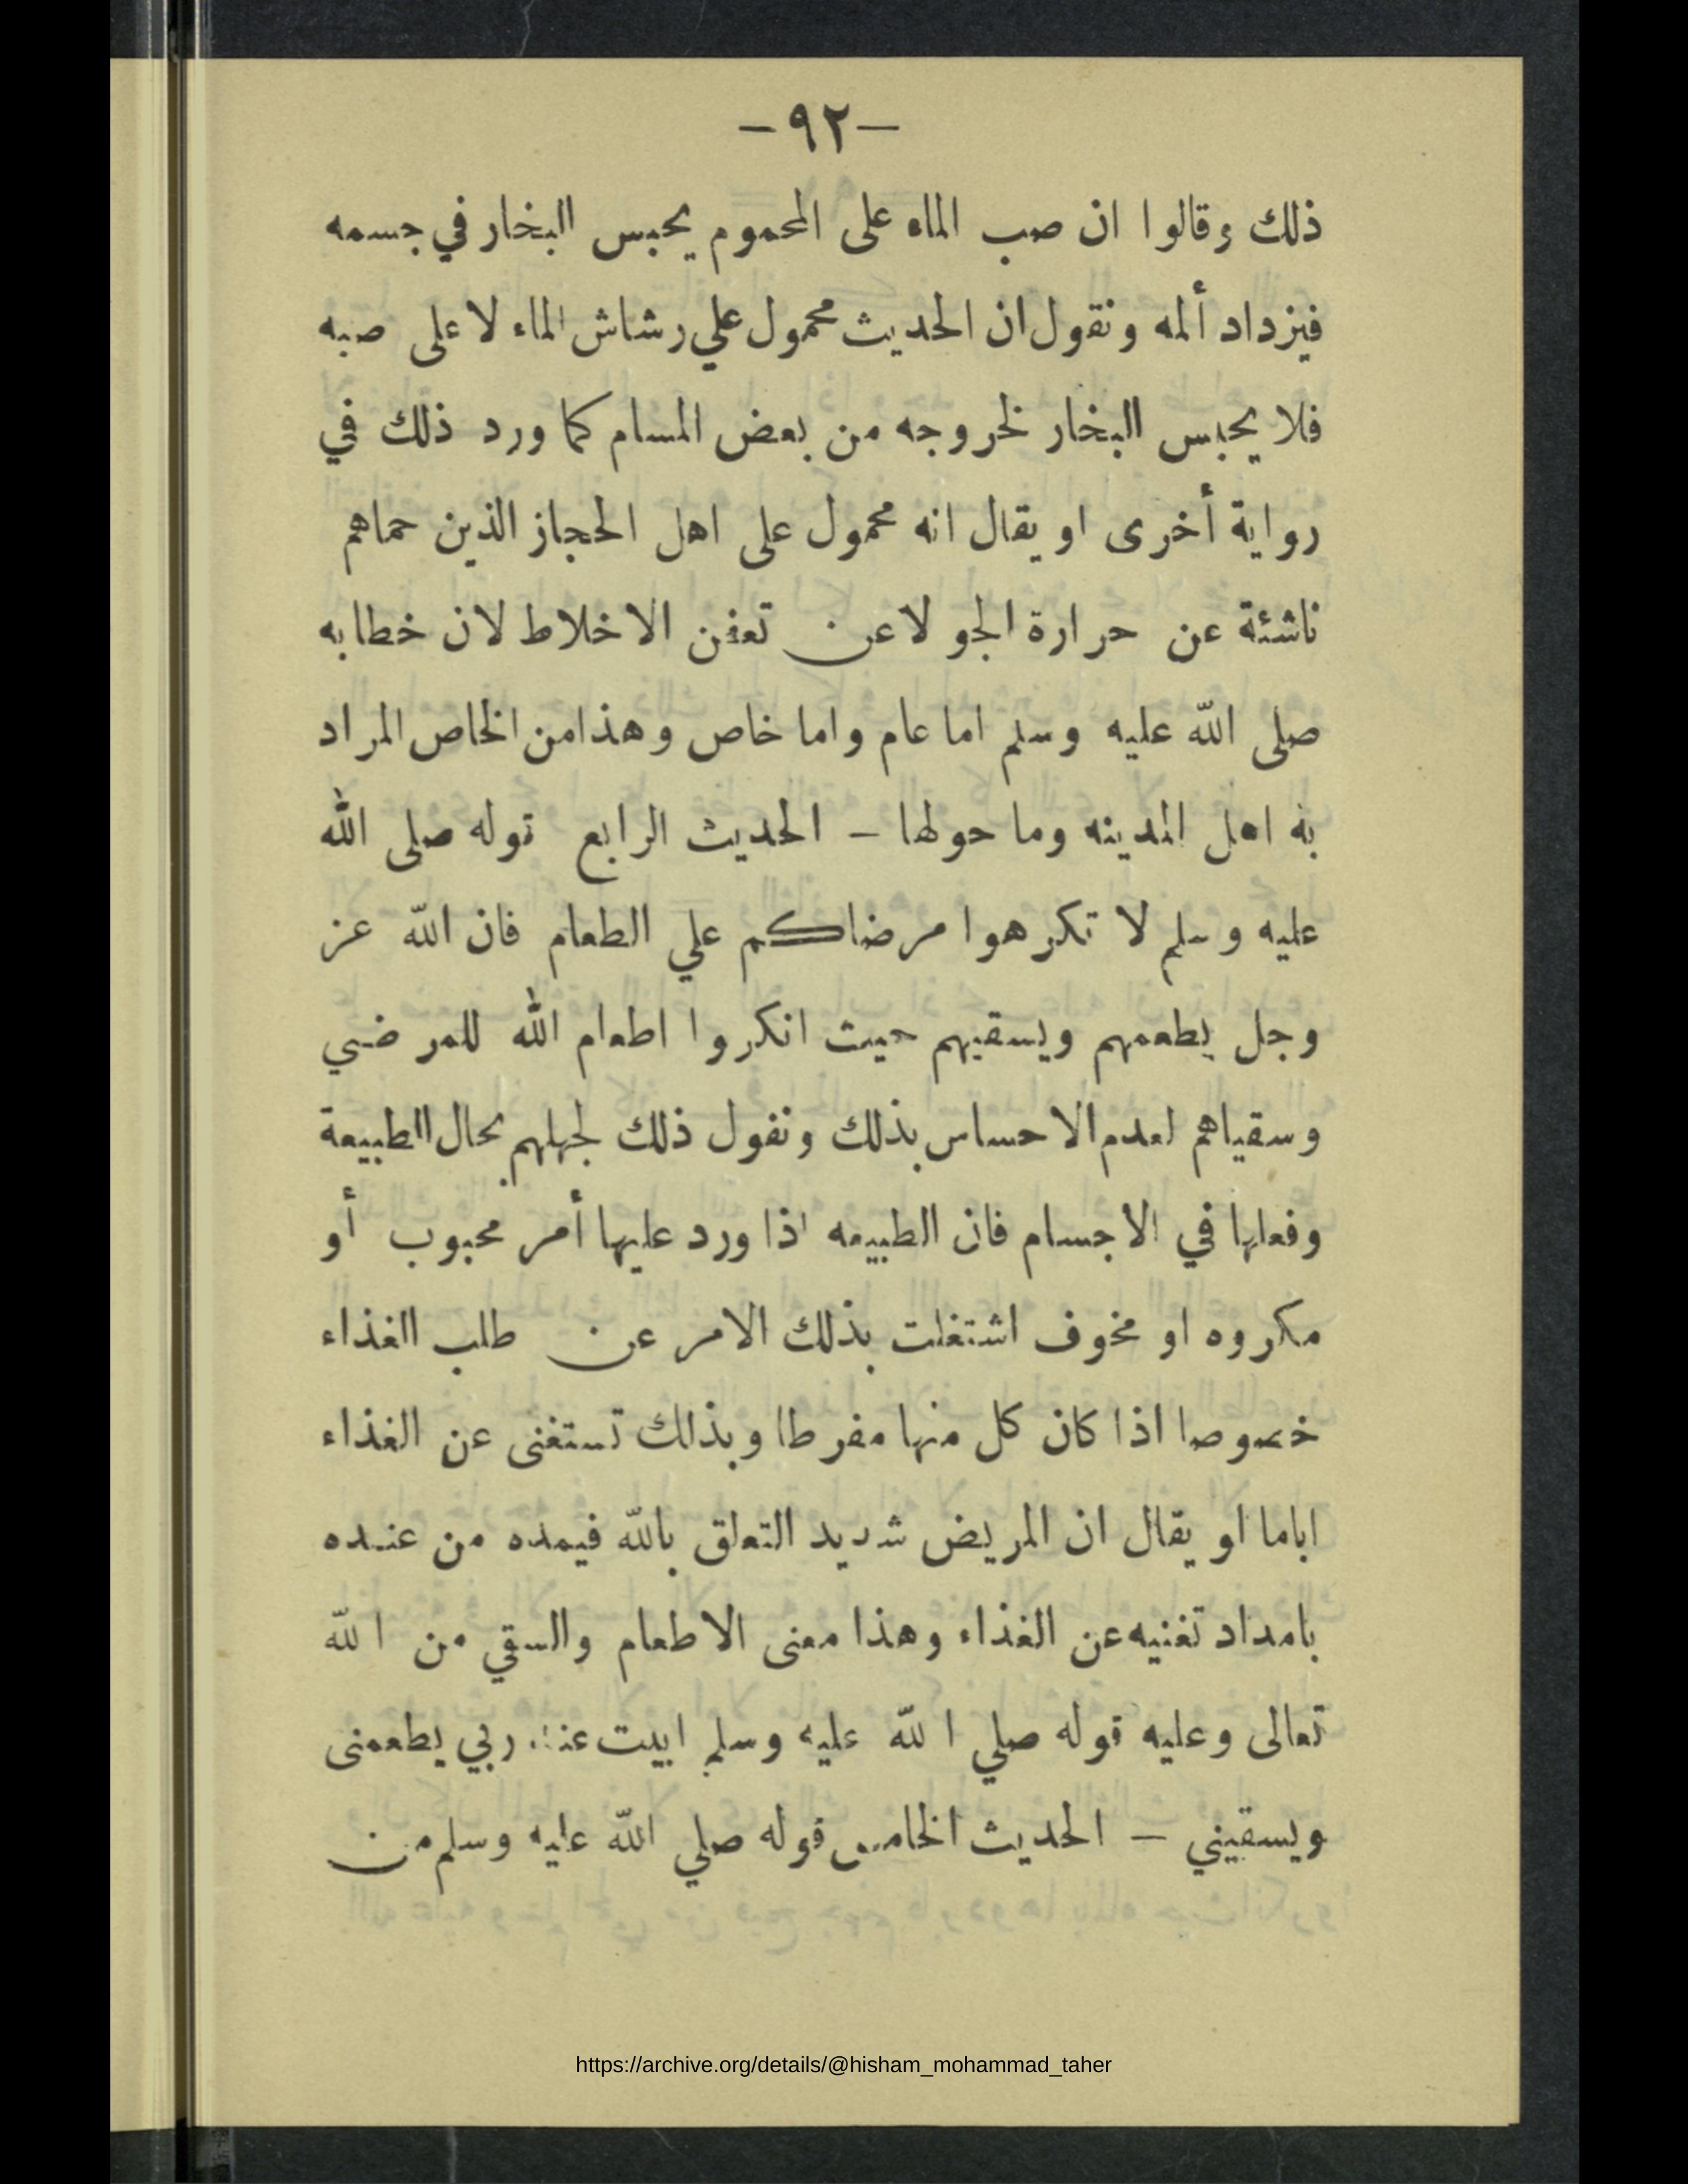 -٩٢-
ذلك وقالوا ان صب الماء على المحموم يحبس البخار في جسمه
فيزداد ألمه ونقول ان الحديث محمول علي رشاش الماء لا على صبه
فلا يحبس البخار لخروجه من بعض المسام كما ورد ذلك في
رواية أخرى او يقال انه محمول على اهل الحجاز الذين حماهم
ناشئة عن حرارة الجو لا عن تعفن الاخلاط لان خطابه
صلى الله عليه وسلم اما عام واما خاص وهذا من الخاص المراد
به اهل المدينه وما حولها - الحديث الرابع قوله صلى الله
عليه وسلم لا تكرهوا مرضاكم علي الطعام فان الله عز
وجل يطعمهم ويسقيهم حيث انكروا اطعام الله للمرضي
وسقياهم لعدم الاحساس بذلك ونقول ذلك لجهلهم بحال الطبيعة
وفعلها في الاجسام فان الطبيعه اذا ورد عليها أمر محبوب أو
مكروه او مخوف اشتغلت بذلك الامر عن طلب الغذاء
خصوصا اذا كان كل منها مفرطا وبذلك تستغنى عن الغذاء
اياما او يقال ان المريض شديد التعلق بالله فيمده من عنده
بامداد تغنيه عن الغذاء وهذا معنى الاطعام والسقي من الله
تعالى وعليه قوله صلي الله عليه وسلم ابيت عند ربي يطعمنى
ويسقيني - الحديث الخامس قوله صلي الله عليه وسلم من
https://archive.org/details/@hisham_mohammad_taher